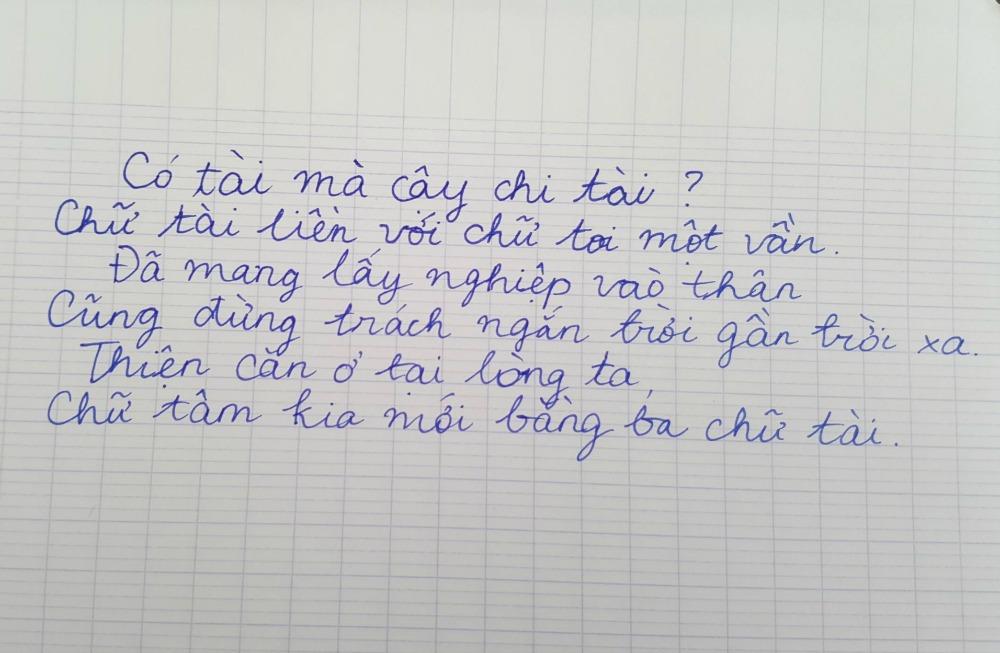 Có tài mà cây chi tài ?
Chữ tài liền với chữ tai một vần.
Đã mang lấy nghiệp vaò thân
Cũng đừng trách ngắn trời gần trời xa.
Thiện căn ở tại lòng ta,
Chữ tâm kia mới bằng ba chữ tài.